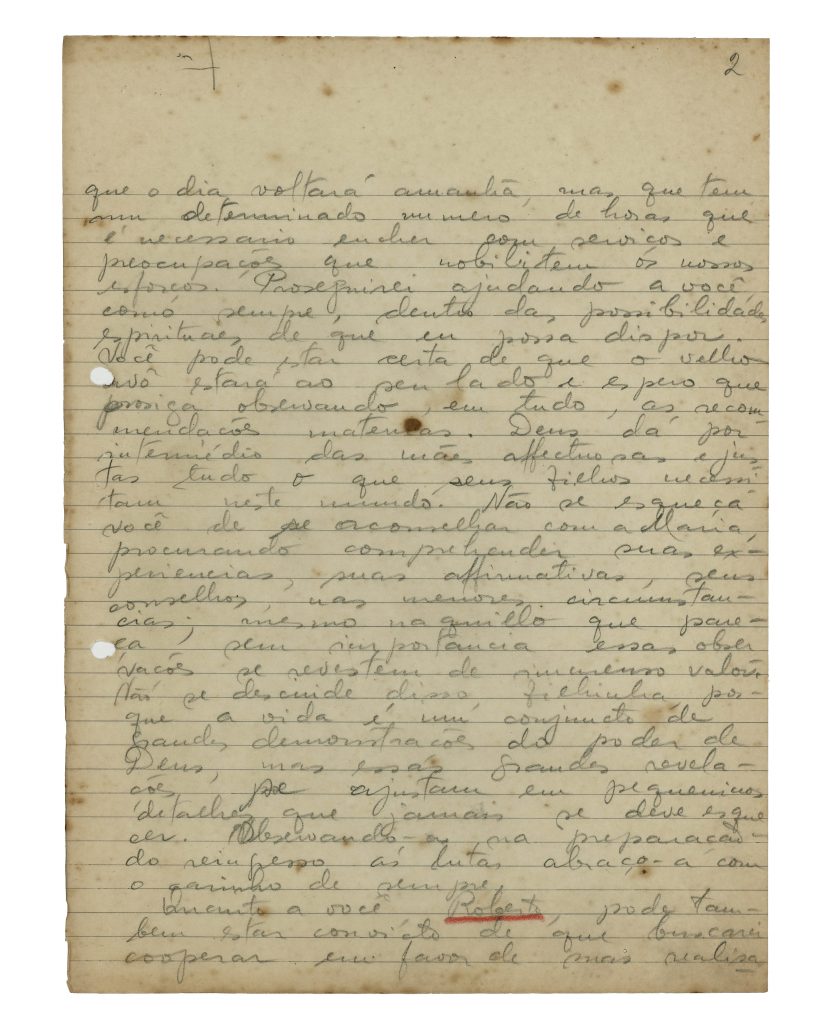 2
que o dia voltará amanhã, mas que tem
um determinado numero de horas que
é necessario encher com serviços e
preocupações que nobilitem os nossos
esforços. Proseguirei ajudando a você
como sempre, dentro das possibilidades
espirituaes de que eu possa dispor.
Você pode estar certa de que o velho
avô estará ao seu lado e espero que
prosiga observando, em tudo, as recom-
mendacões maternas. Deus dá por
intermédio das mães affectuosas e jus
tas tudo o que seus filhos necessi-
tam neste mundo. Não se esqueça
você de se aconselhar com a Maria,
procurando comprehender suas ex-
periencias, suas affirmativas, seus
conselhos, nas menores circumstan-
cias; mesmo naquillo que pare-
ça sem importância essas obser
vacões se revestem de immenso valor.
Não se descuide disso, filhinha por-
que a vida é um conjuncto de
grandes demonstracões do poder de
Deus, mas essas grandes revela-
cões se ajustam em pequeninos
detalhes que jamais se deve esque
cer. Observando-a na preparacão
do reingresso ás lutas abraço-a com
o carinho de sempre.
Quanto a você Roberto, pode tam-
bem estar convicto de que buscarei
cooperar em favor de suas realisa